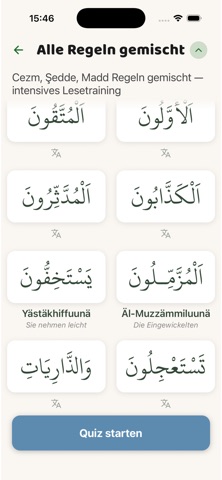 ..:46
Alle Regeln gemischt
Cezm, Şedde, Madd Regeln gemischt —
intensives Lesetraining
اَلْمُتَّقُونَ
اَلْاَوَّلُونَ
اَلْمُدَّثِّرُونَ
اَلْكَذَّابُونَ
يَسْتَخِفُّونَ
اَلْمُزَّمِّلُونَ
Yästäkhiffuunä
Äl-Muzzämmiluunä
Sie nehmen leicht
Die Eingewickelten
وَالذَّارِيَاتِ
تَسْتَعْجِلُونَ
Quiz starten